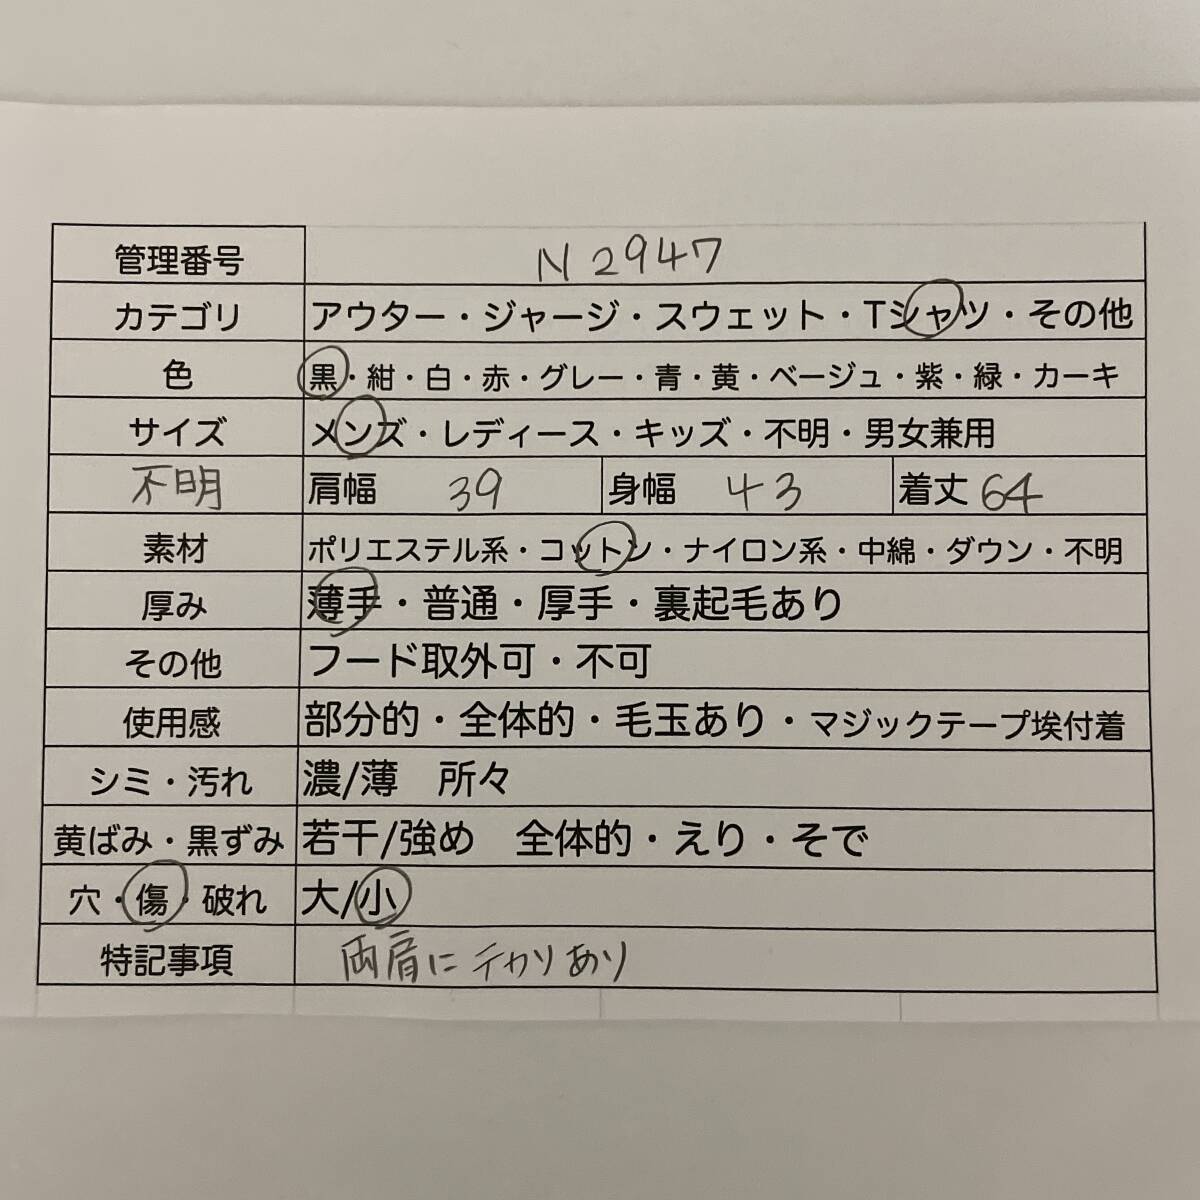 管理番号 N2947
カテゴリ アウター・ジャージ・スウェット・Tシャツ・その他
色 黒・紺・白・赤・グレー・青・黄・ベージュ・紫・緑・カーキ
サイズ メンズ・レディース・キッズ・不明・男女兼用
不明 肩幅 39 身幅 43 着丈 64
素材 ポリエステル系・コットン・ナイロン系・中綿・ダウン・不明
厚み 薄手・普通・厚手・裏起毛あり
その他 フード取外可・不可
使用感 部分的・全体的・毛玉あり・マジックテープ埃付着
シミ・汚れ 濃/薄 所々
黄ばみ・黒ずみ 若干/強め 全体的・えり・そで
穴・傷・破れ 大/小
特記事項 両肩にテカリあり